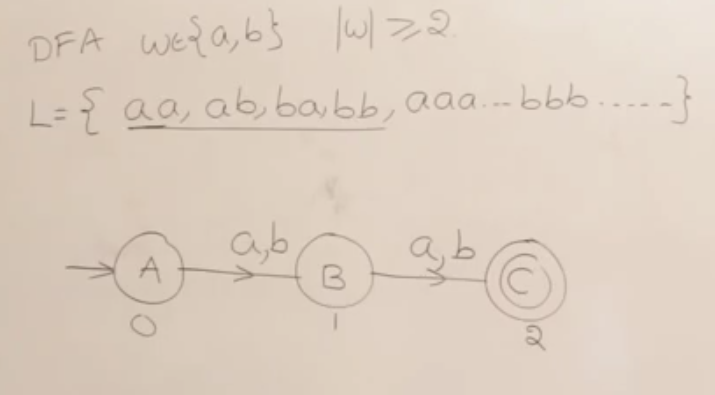 DFA w∈{a,b} |w|≥2
L={ aa, ab, ba, bb, aaa...bbb.....}
a,b a,b
A B C
0 1 2